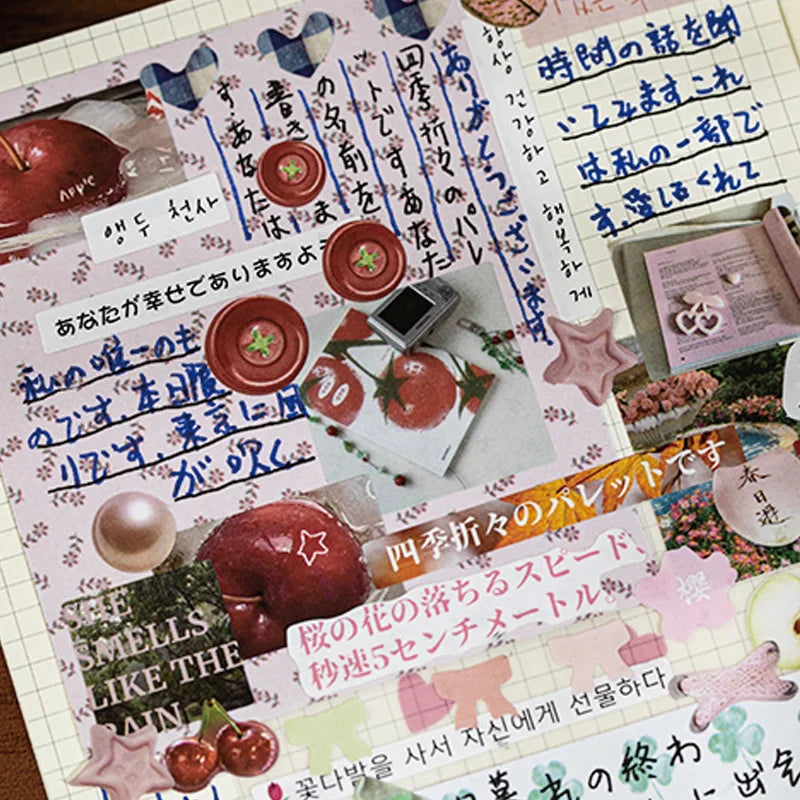 ありがとうございます
四季折々のパレ
ットですあなた
の名前を
書きま
す。あなたは
항상 건강하고 행복하게
時間の話を聞
いてみます。これ
は私の一部で
す。愛してくれて
Apple
앵두 천사
あなたが幸せでありますよ
私の唯一のも
のです。本日曜
りです。東京に雨
が吹く
四季折々のパレットです
春日遊
桜の花の落ちるスピード、
秒速5センチメートル。
櫻
SHE
SMELLS
LIKE THE
RAIN
꽃다발을 사서 자신에게 선물하다
の終わ
に出会